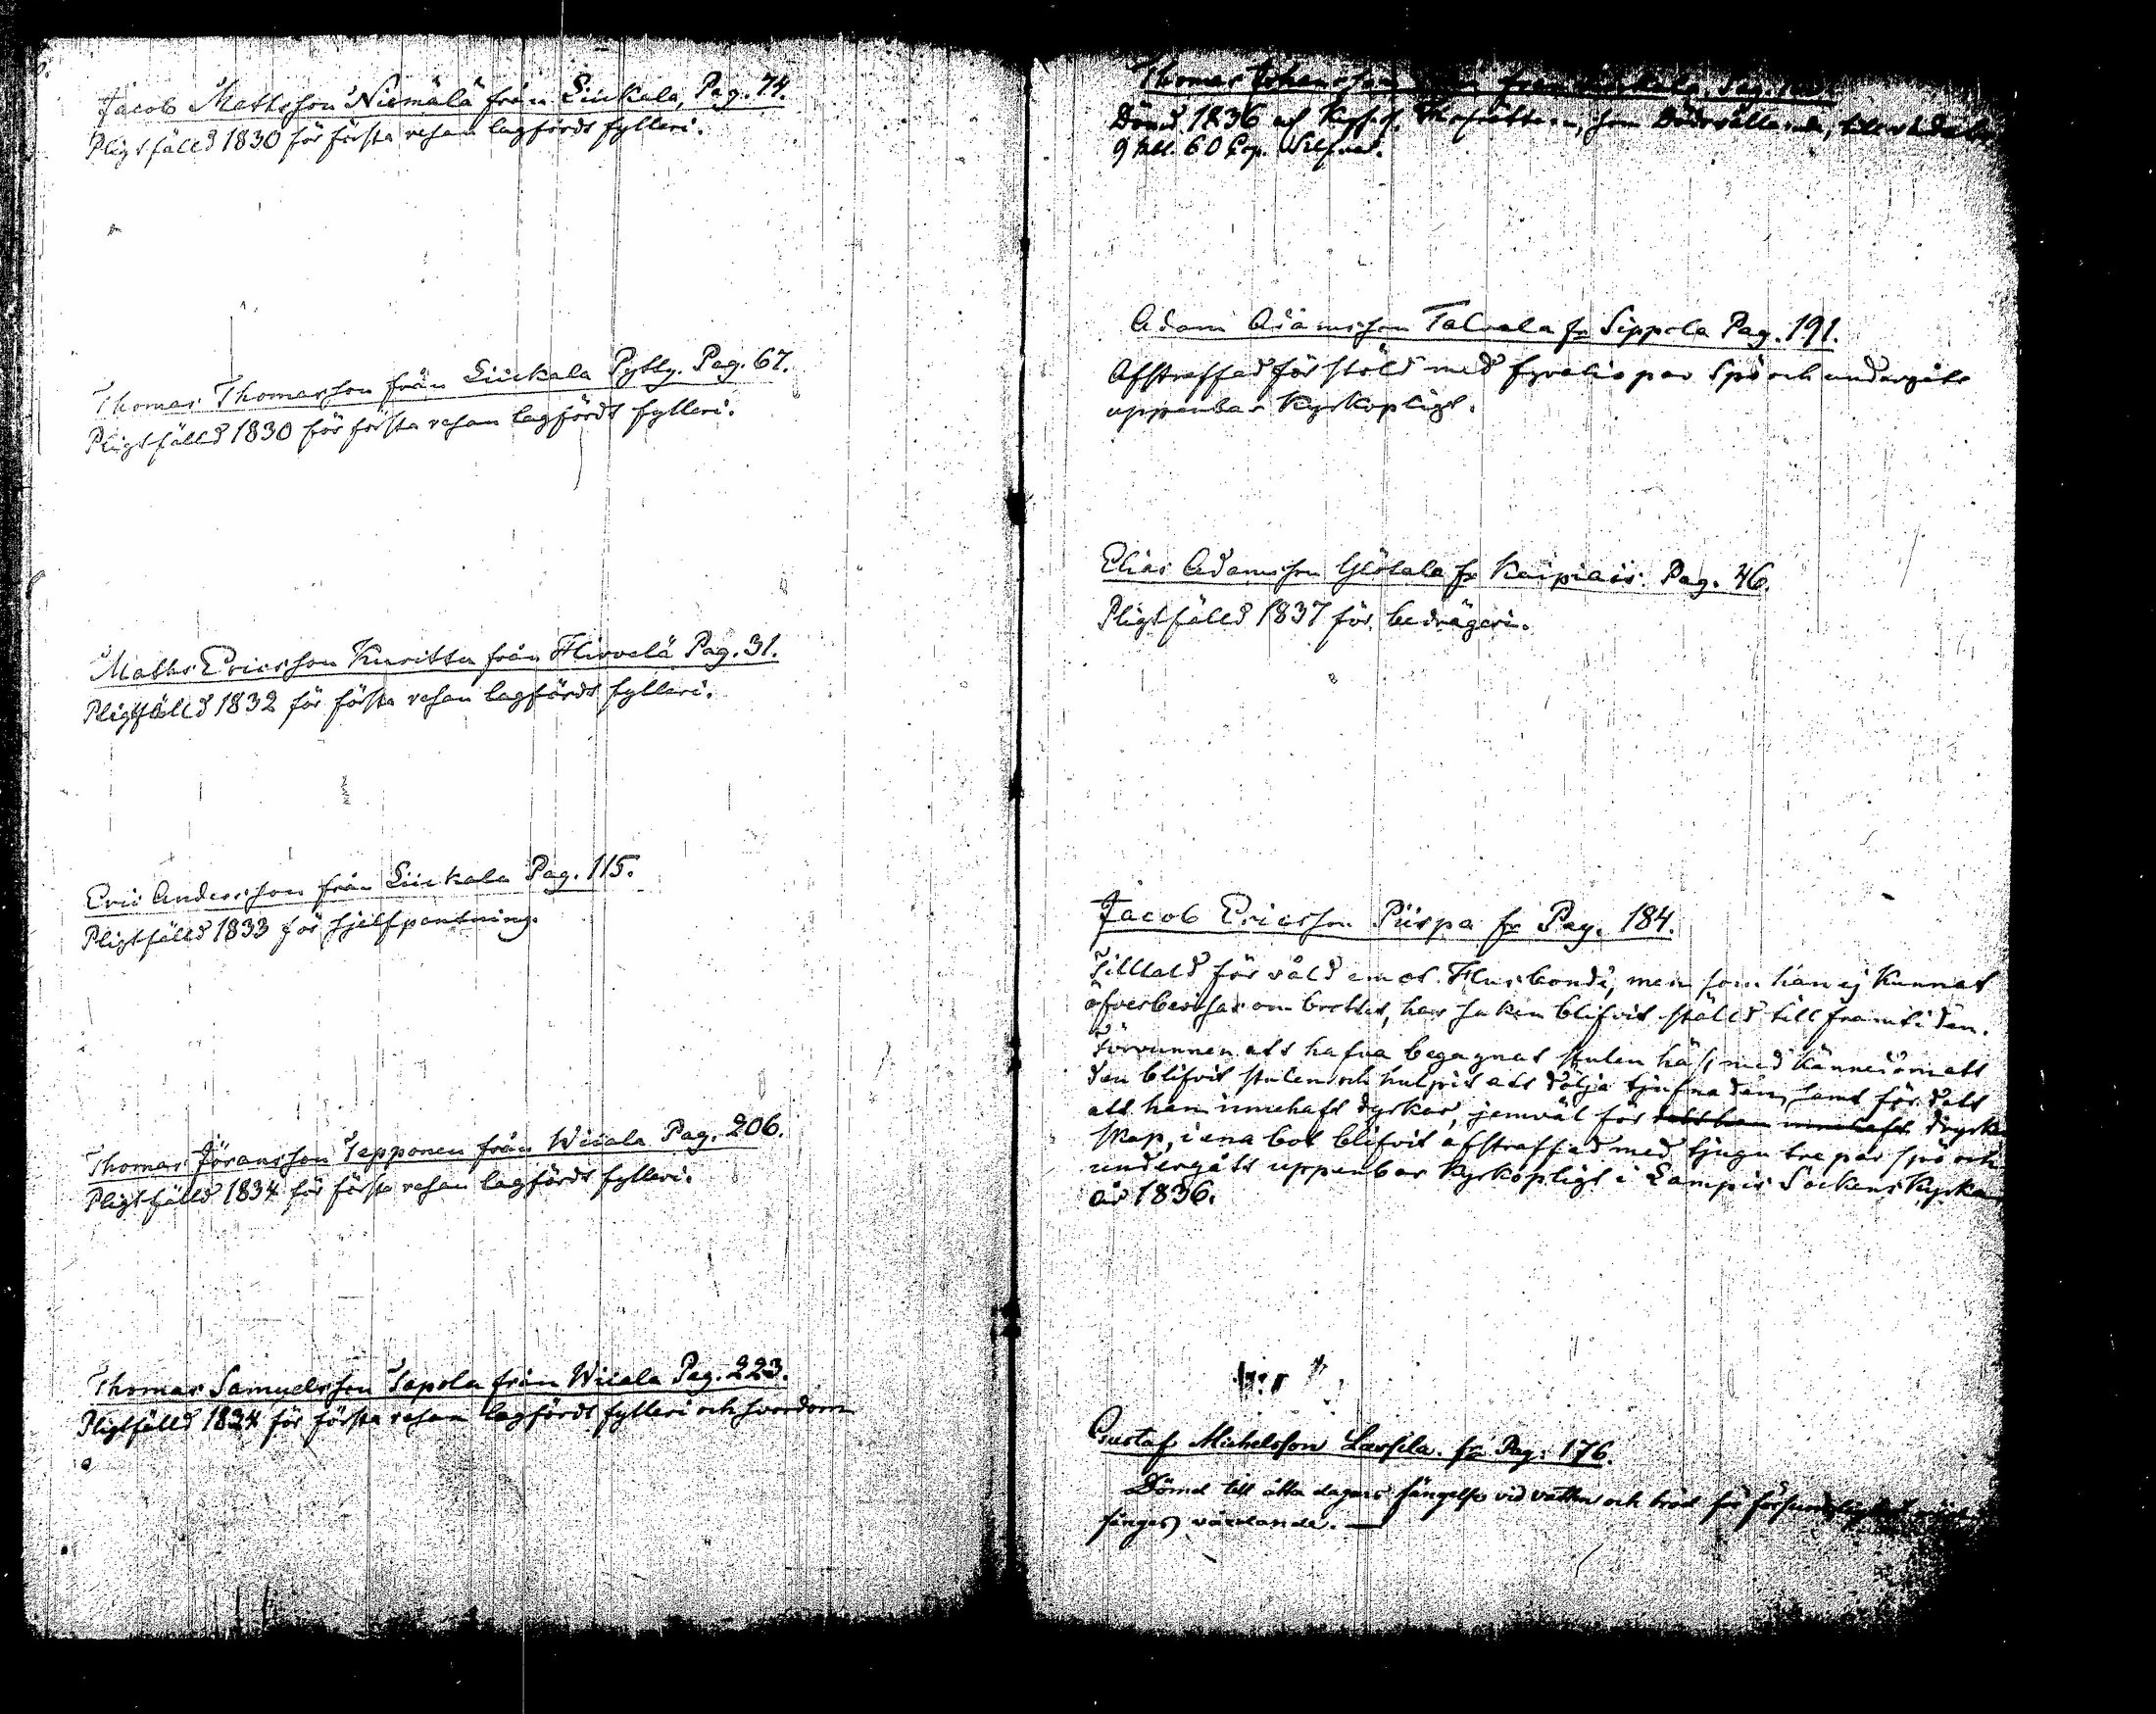 Jacob Mathsson Niemälä från Liickala, Pag. 74.
Pligtfälld 1830 för första resan lagfördt fylleri.
Thomas Thomasson från Liickala Pytty. Pag. 67.
Pligtfälld 1830 för första resan lagfördt fylleri.
Maths Ericsson Kuritta från Hirvelä Pag. 31.
Pligtfälld 1832 för första resan lagfördt fylleri.
Eric Andersson från Liickala Pag. 115.
Pligtfälld 1833 för sjelfpantning.
Thomas Jöransson Tepponen från Wiiala Pag. 206.
Pligtfälld 1834 för första resan lagfördt fylleri.
Thomas Samuelsson Tapola från Wiiala Pag. 223.
Pligtfälld 1834 för första resan lagfördt fylleri och svordom
Thomas Johansson från Pag.
Dömd 1836 af Kejs. Hofrätten, som Dödsvållande, till
9 Rbl. 60 Cop. Silfver.
Adam Adamsson Talvela fr Sippola Pag. 191.
Afstraffad för stöld med fyratio par Spö och undergått
uppenbar Kyrkopligt.
Elias Adamsson fr Kaipiais. Pag. 46.
Pligtfälld 1837 för bedrägeri.
Jacob Ericsson Piispa fr Pag. 184.
Tilltald för våld emot Husbonde, men som han ej kunnat
öfverbevisas om brottet, har saken blifvit ställd till framtiden.
Förvunnen att hafva begagnat stulen häst med kännedom att
den blifvit stulen och hulpit att dölja tjufnaden, samt för det
att han innehaft dyrkar, jemväl för det han innehaft dryck
skap, i ena bot blifvit afstraffad med tjugu tre par spö och
undergått uppenbar Kyrkopligt i Lampis Sockens Kyrka
år 1836.
Gustaf Michelsson Laurila. fr Pag. 176.
Dömd till åtta dagars fängelse vid vatten och bröd för
fånges vårdande. —